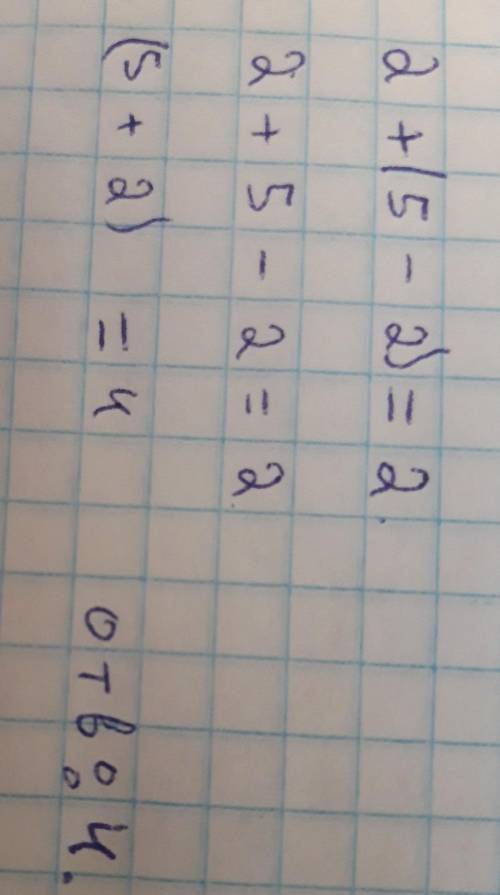 2 + (5 - 2) = 2.
2 + 5 - 2 = 2.
(5 + 2) = 4 отв: 4.